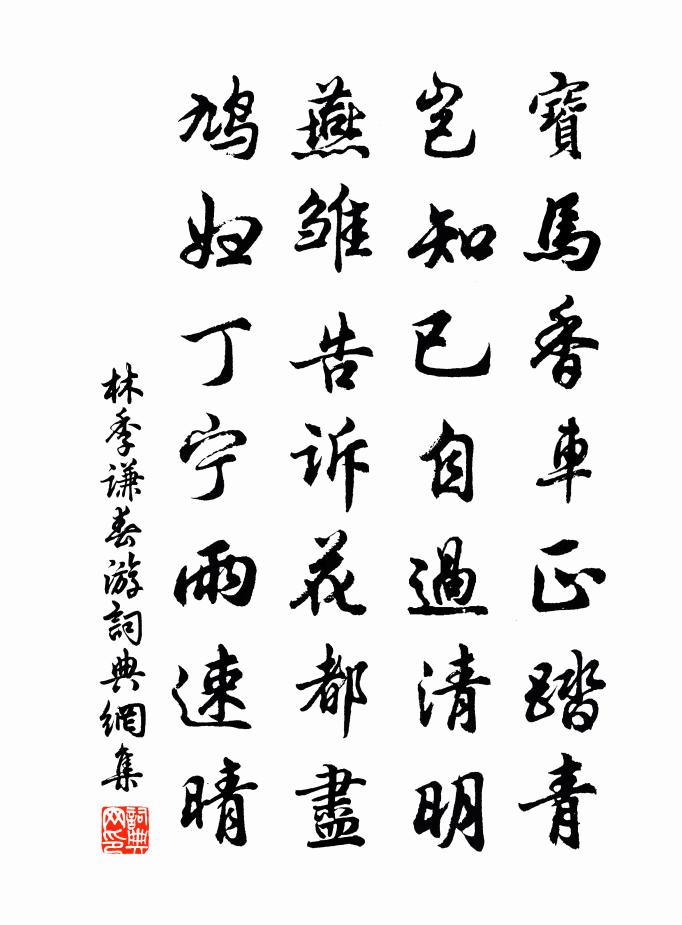 寶馬香車正踏青
豈知已自過清明
燕雏告诉花都盡
鸠妇丁宁雨速晴
林季谦春游詞典網集
詞典网印